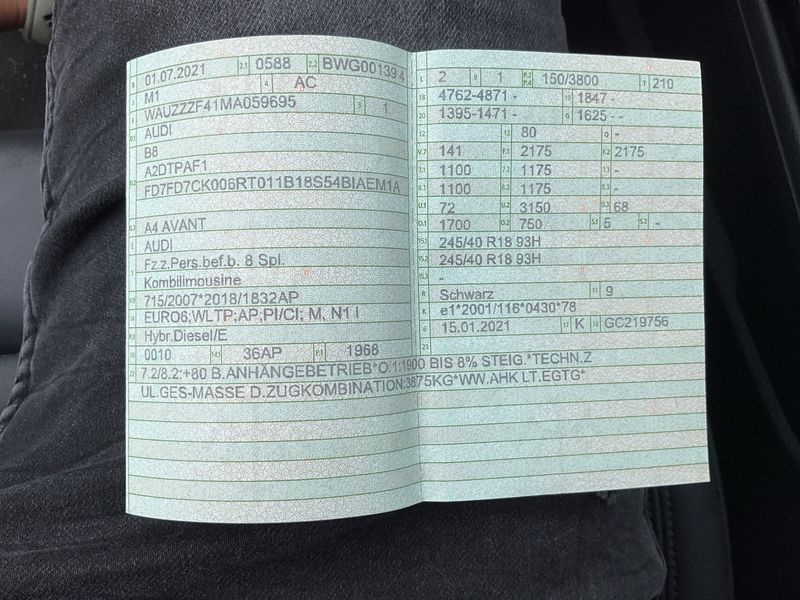 B 01.07.2021 2.1 0588 2.2 BWG00139 4
J M1 4 AC
E WAUZZZF41MA059695 3 1
D.1 AUDI
B8
D.2 A2DTPAF1
FD7FD7CK006RT011B18S54BIAEM1A
D.3 A4 AVANT
2 AUDI
5 Fz.z.Pers.bef.b. 8 Spl.
Kombilimousine
V.9 715/2007*2018/1832AP
14 EURO6;WLTP;AP;PI/CI; M, N1 I
P.3 Hybr.Diesel/E
10 0010 14.1 36AP P.1 1968
22 7.2/8.2:+80 B.ANHÄNGEBETRIEB*O.1:1900 BIS 8% STEIG.*TECHN.Z
UL.GES-MASSE D.ZUGKOMBINATION:3875KG*WW.AHK LT.EGTG*
L 2 9 1 P.2 P.4 150/3800 T 210
18 4762-4871 - 19 1847 -
20 1395-1471 - G 1625 -
12 - 13 80 Q -
V.7 141 F.1 2175 F.2 2175
7.1 1100 7.2 1175 7.3 -
8.1 1100 8.2 1175 8.3 -
U.1 72 U.2 3150 U.3 68
O.1 1700 O.2 750 S.1 5 S.2 -
15.1 245/40 R18 93H
15.2 245/40 R18 93H
15.3 -
R Schwarz 11 9
K e1*2001/116*0430*78
6 15.01.2021 17 K 16 GC219756
21